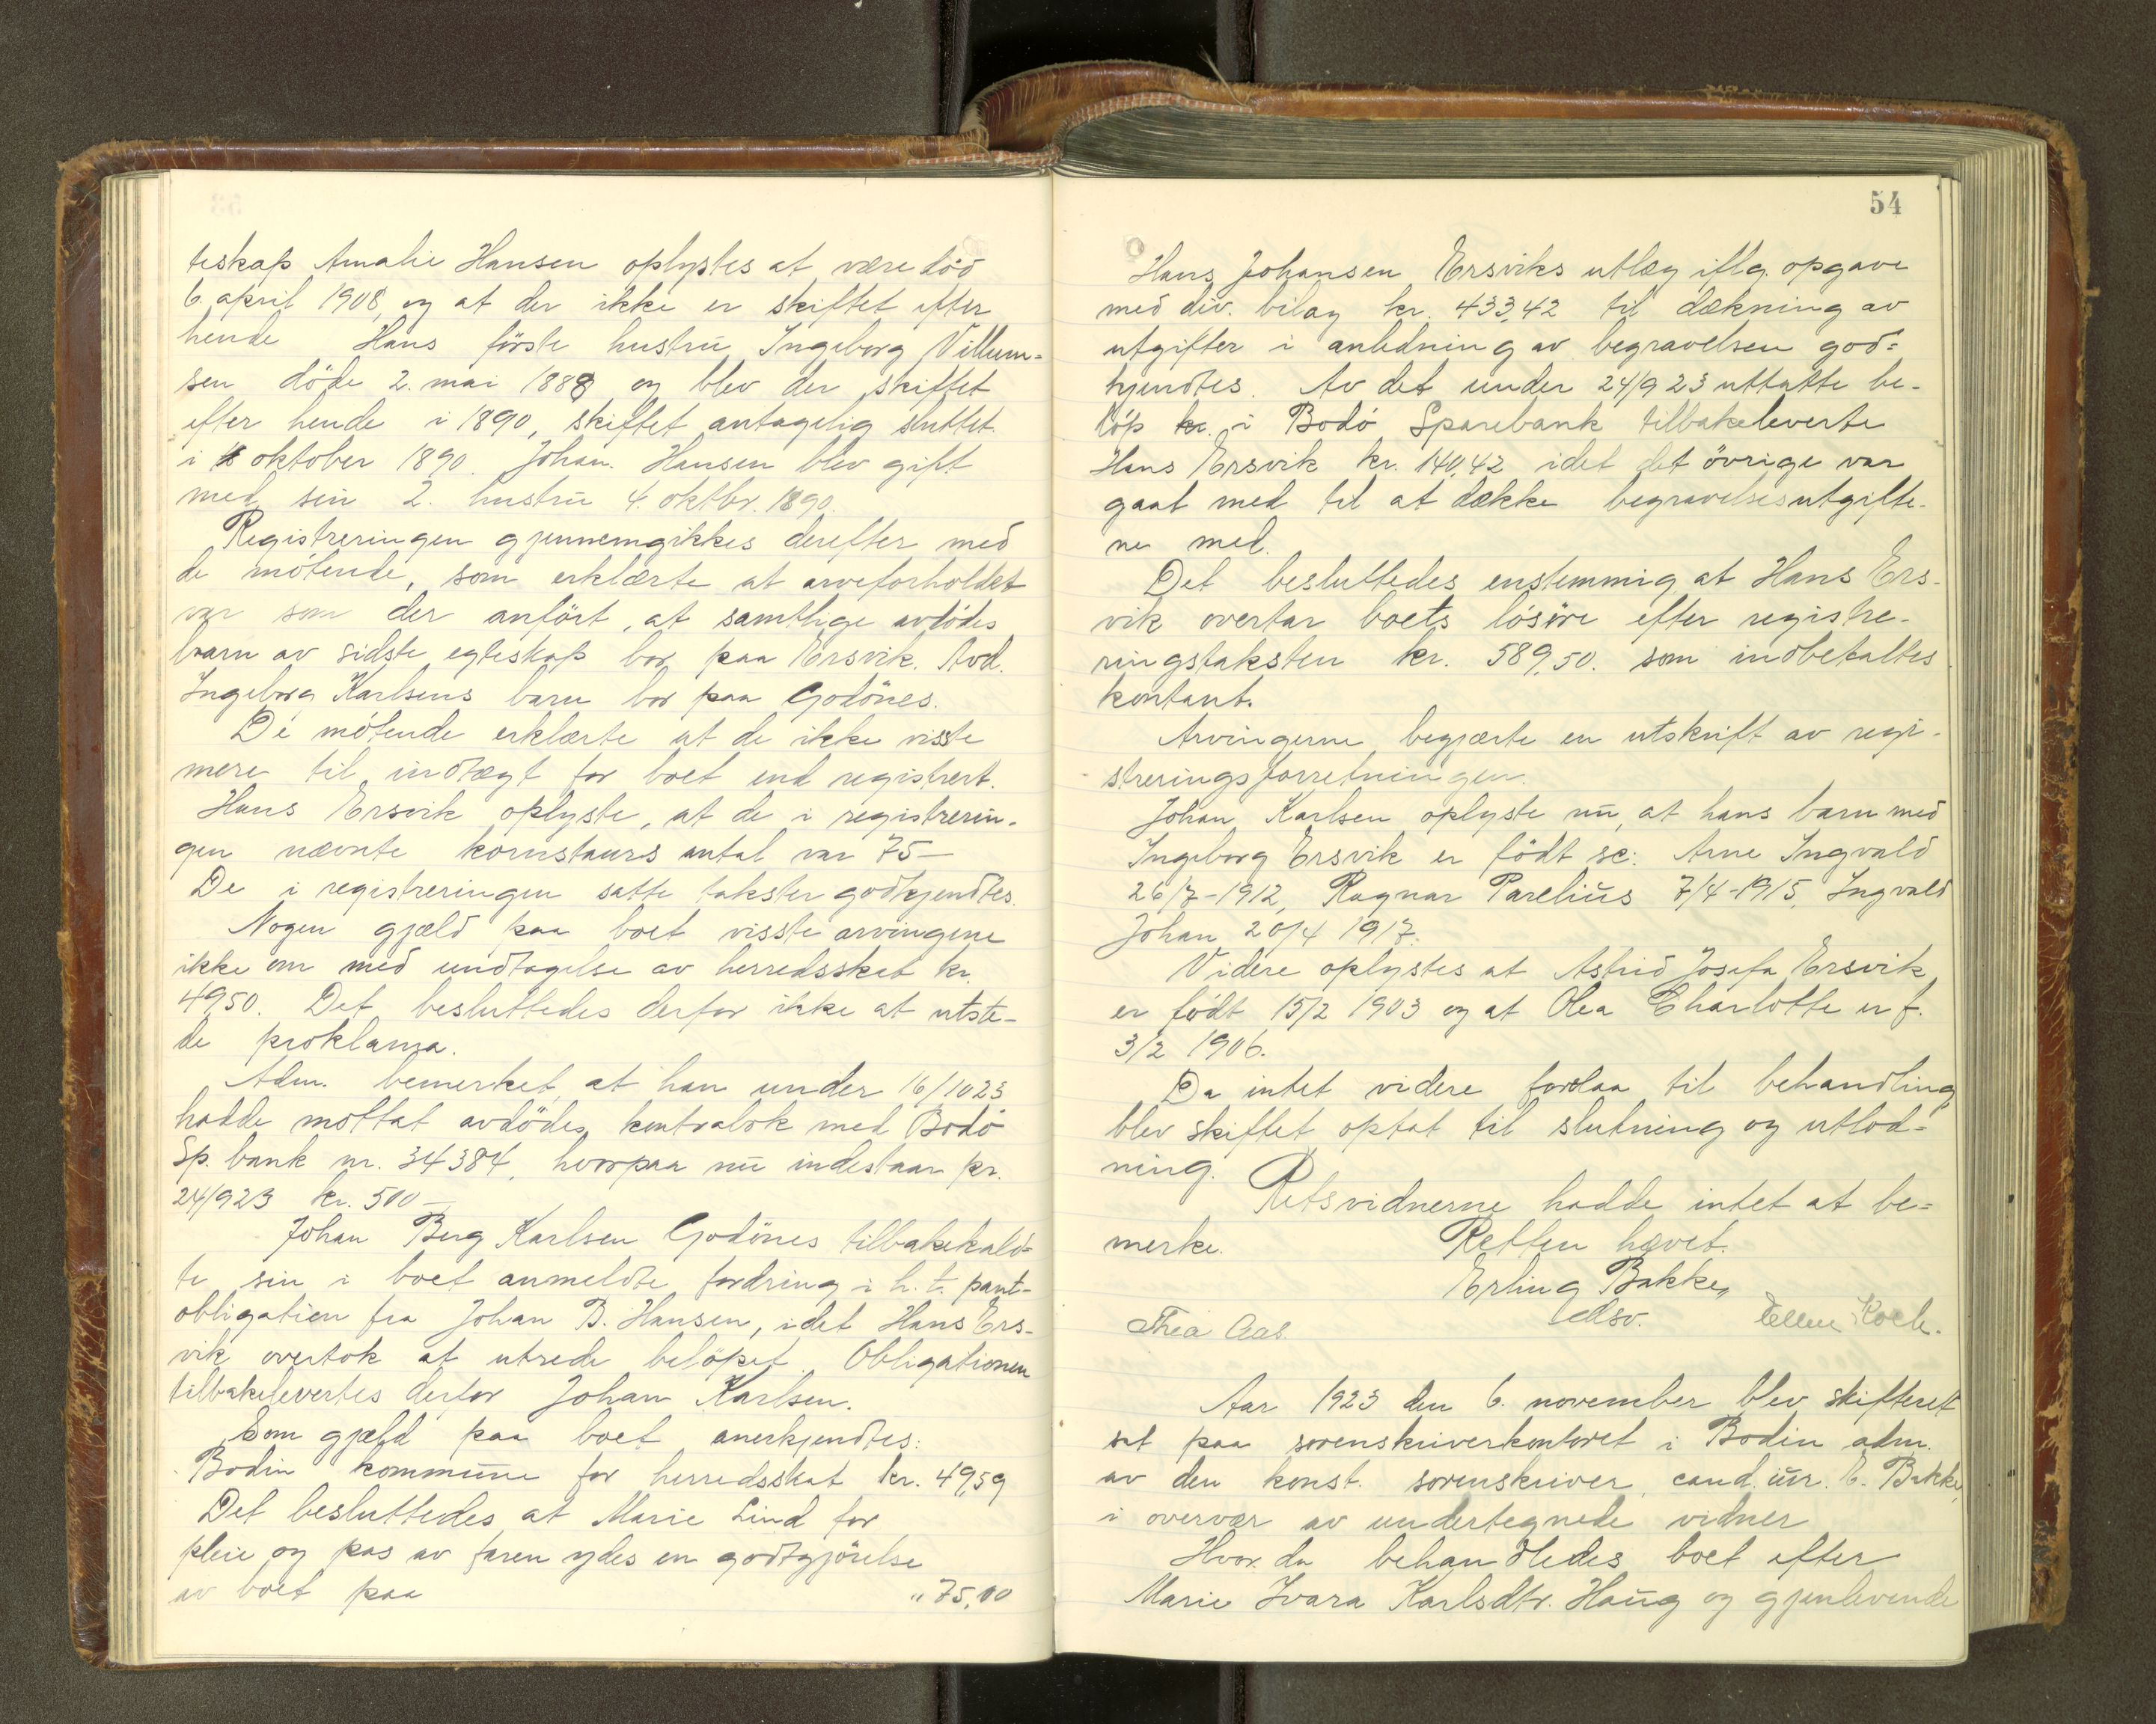 teskap Amalie Hansen oplystes at være død
6. april 1908, og at der ikke er skiftet efter
hende Hans første hustru Ingeborg Villum-
sen døde 2. mai 1888 og blev der skiftet
efter hende i 1890, skiftet antagelig sluttet
i oktober 1890. Johan. Hansen blev gift
med sin 2. hustru 4. oktbr. 1890.
Registreringen gjennemgikkes derefter med
de møtende, som erklærte at arveforholdet
var som der anført, at samtlige avdødes
barn av sidste egteskap bor paa Ersvik. Avd.
Ingeborg Karlsens barn bor paa Godönes.
De møtende erklærte at de ikke visste
mere til indtægt for boet end registrert.
Hans Ersvik oplyste, at de i registrerin-
gen nævnte kornstaurs antal var 75—
De i registreringen satte takster godkjendtes.
Nogen gjæld paa boet visste arvingene
ikke om med undtagelse av herredsskat kr.
49,50. Det besluttedes derfor ikke at utste-
de proklama.
Adm. bemerket at han under 16/10 23
hadde mottat avdödes kontrabok med Bodö
Sp. bank nr. 34384, hvorpaa nu indestaar pr.
24/9 23 kr. 500—
Johan Berg Karlsen Godönes tilbakekald-
te sin i boet anmeldte fordring i h. t. pant-
obligation fra Johan B. Hansen, idet Hans Ers-
vik overtok at utrede beløpet. Obligationen
tilbakelevertes derfor Johan Karlsen.
Som gjæld paa boet anerkjendtes:
Bodin kommune for herredsskat kr. 49,59
Det besluttedes at Marie Lind for
pleie og pas av faren ydes en godtgjörelse
av boet paa " 75,00
54
Hans Johansen Ersviks utlæg iflg. opgave
med div. bilag kr. 433,42 til dækning av
utgifter i anledning av begravelsen god-
kjendtes. Av det under 24/9 23 uttatte be-
løp kr. i Bodö Sparebank tilbakeleverte
Hans Ersvik kr. 140,42 idet det övrige var
gaat med til at dække begravelsesutgifte-
ne med.
Det besluttedes enstemmig at Hans Ers-
vik overtar boets lösöre efter registre-
ringstaksten kr. 589,50. som indbetaltes
kontant.
Arvingerne begjærte en utskrift av regi-
streringsforretningen.
Johan Karlsen oplyste nu, at hans barn med
Ingeborg Ersvik er födt sc: Arne Ingvald
26/7-1912, Ragnar Parelius 7/4-1915, Ingvald
Johan 20/4 1917.
Videre oplystes at Astrid Josefa Ersvik
er födt 15/2 1903 og at Olea Charlotte er f.
3/2 1906.
Da intet videre forelaa til behandling
blev skiftet optat til slutning og utlod-
ning.
Retsvidnerne hadde intet at be-
merke. Retten hævet.
Erling Bakke,
edsv.
Thea Aas. Ellen Koch.
Aar 1923 den 6. november blev skifteret
sat paa sorenskriverkontoret i Bodin adm.
av den konst. sorenskriver, cand. iur. E. Bakke,
i overvær av undertegnede vidner
Hvor da behandledes boet efter
Marie Ivara Karlsdtr. Haug og gjenlevende